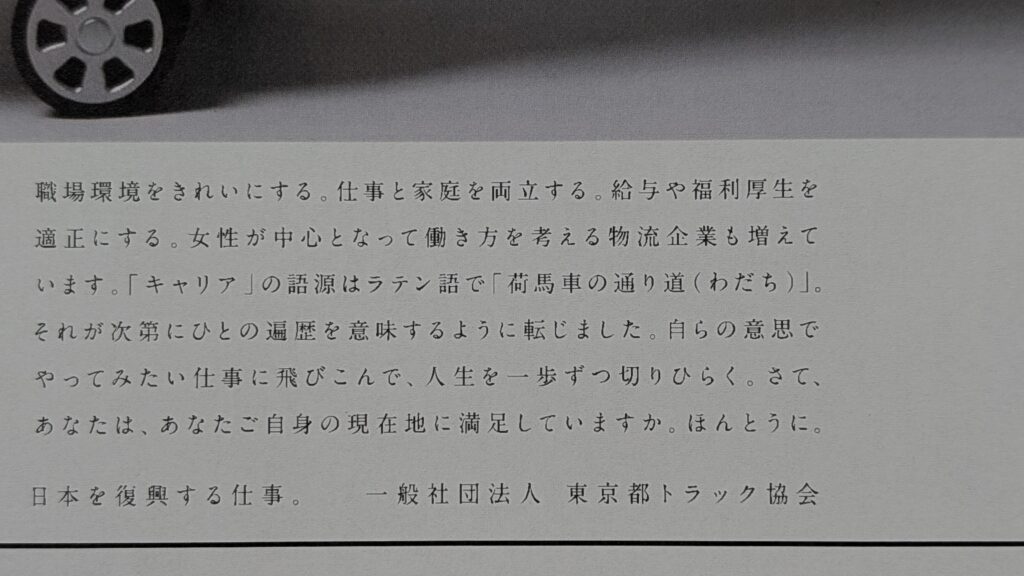 職場環境をきれいにする。仕事と家庭を両立する。給与や福利厚生を
適正にする。女性が中心となって働き方を考える物流企業も増えて
います。「キャリア」の語源はラテン語で「荷馬車の通り道(わだち)」。
それが次第にひとの遍歴を意味するように転じました。自らの意思で
やってみたい仕事に飛びこんで、人生を一歩ずつ切りひらく。さて、
あなたは、あなたご自身の現在地に満足していますか。ほんとうに。
日本を復興する仕事。 一般社団法人 東京都トラック協会